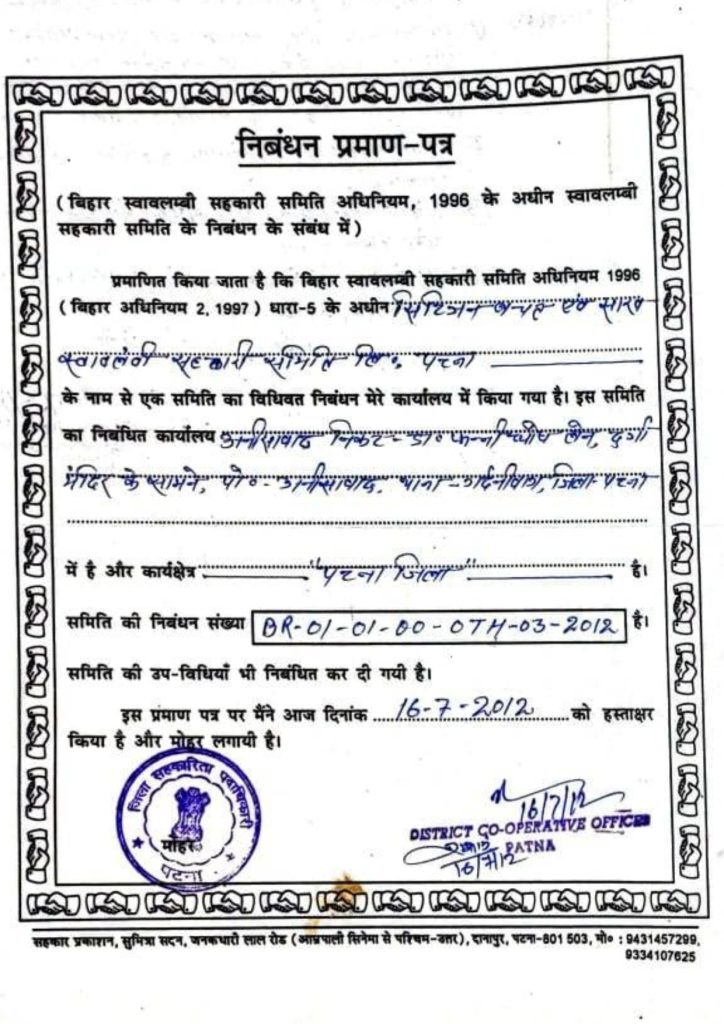 निबंधन प्रमाण-पत्र
(बिहार स्वावलम्बी सहकारी समिति अधिनियम, 1996 के अधीन स्वावलम्बी
सहकारी समिति के निबंधन के संबंध में)
प्रमाणित किया जाता है कि बिहार स्वावलम्बी सहकारी समिति अधिनियम 1996
(बिहार अधिनियम 2, 1997) धारा-5 के अधीन सिटिजन बचत एवं साख
स्वावलंबी सहकारी समिति लि०, पटना
के नाम से एक समिति का विधिवत निबंधन मेरे कार्यालय में किया गया है। इस समिति
का निबंधित कार्यालय अनीसाबाद निकट- डा० लेन, दुर्गा
मंदिर के सामने, पो०- अनीसाबाद, थाना-गर्दनीबाग, जिला-पटना
में है और कार्यक्षेत्र "पटना जिला" है।
समिति की निबंधन संख्या BR-01-01-00-OTH-03-2012 है।
समिति की उप-विधियाँ भी निबंधित कर दी गयी है।
इस प्रंमाण पत्र पर मैंने आज दिनांक 16-7-2012 को हस्ताक्षर
किया है और मोहर लगायी है।
जिला सहकारिता पदाधिकारी
मोहर
पटना
16/7/12
DISTRICT CO-OPERATIVE OFFICER
PATNA
16/7/12
सहकार प्रकाशन, सुमित्रा सदन, जनकधारी लाल रोड (आम्रपाली सिनेमा से पश्चिम-उत्तर), दानापुर, पटना-801 503, मो० : 9431457299,
9334107625